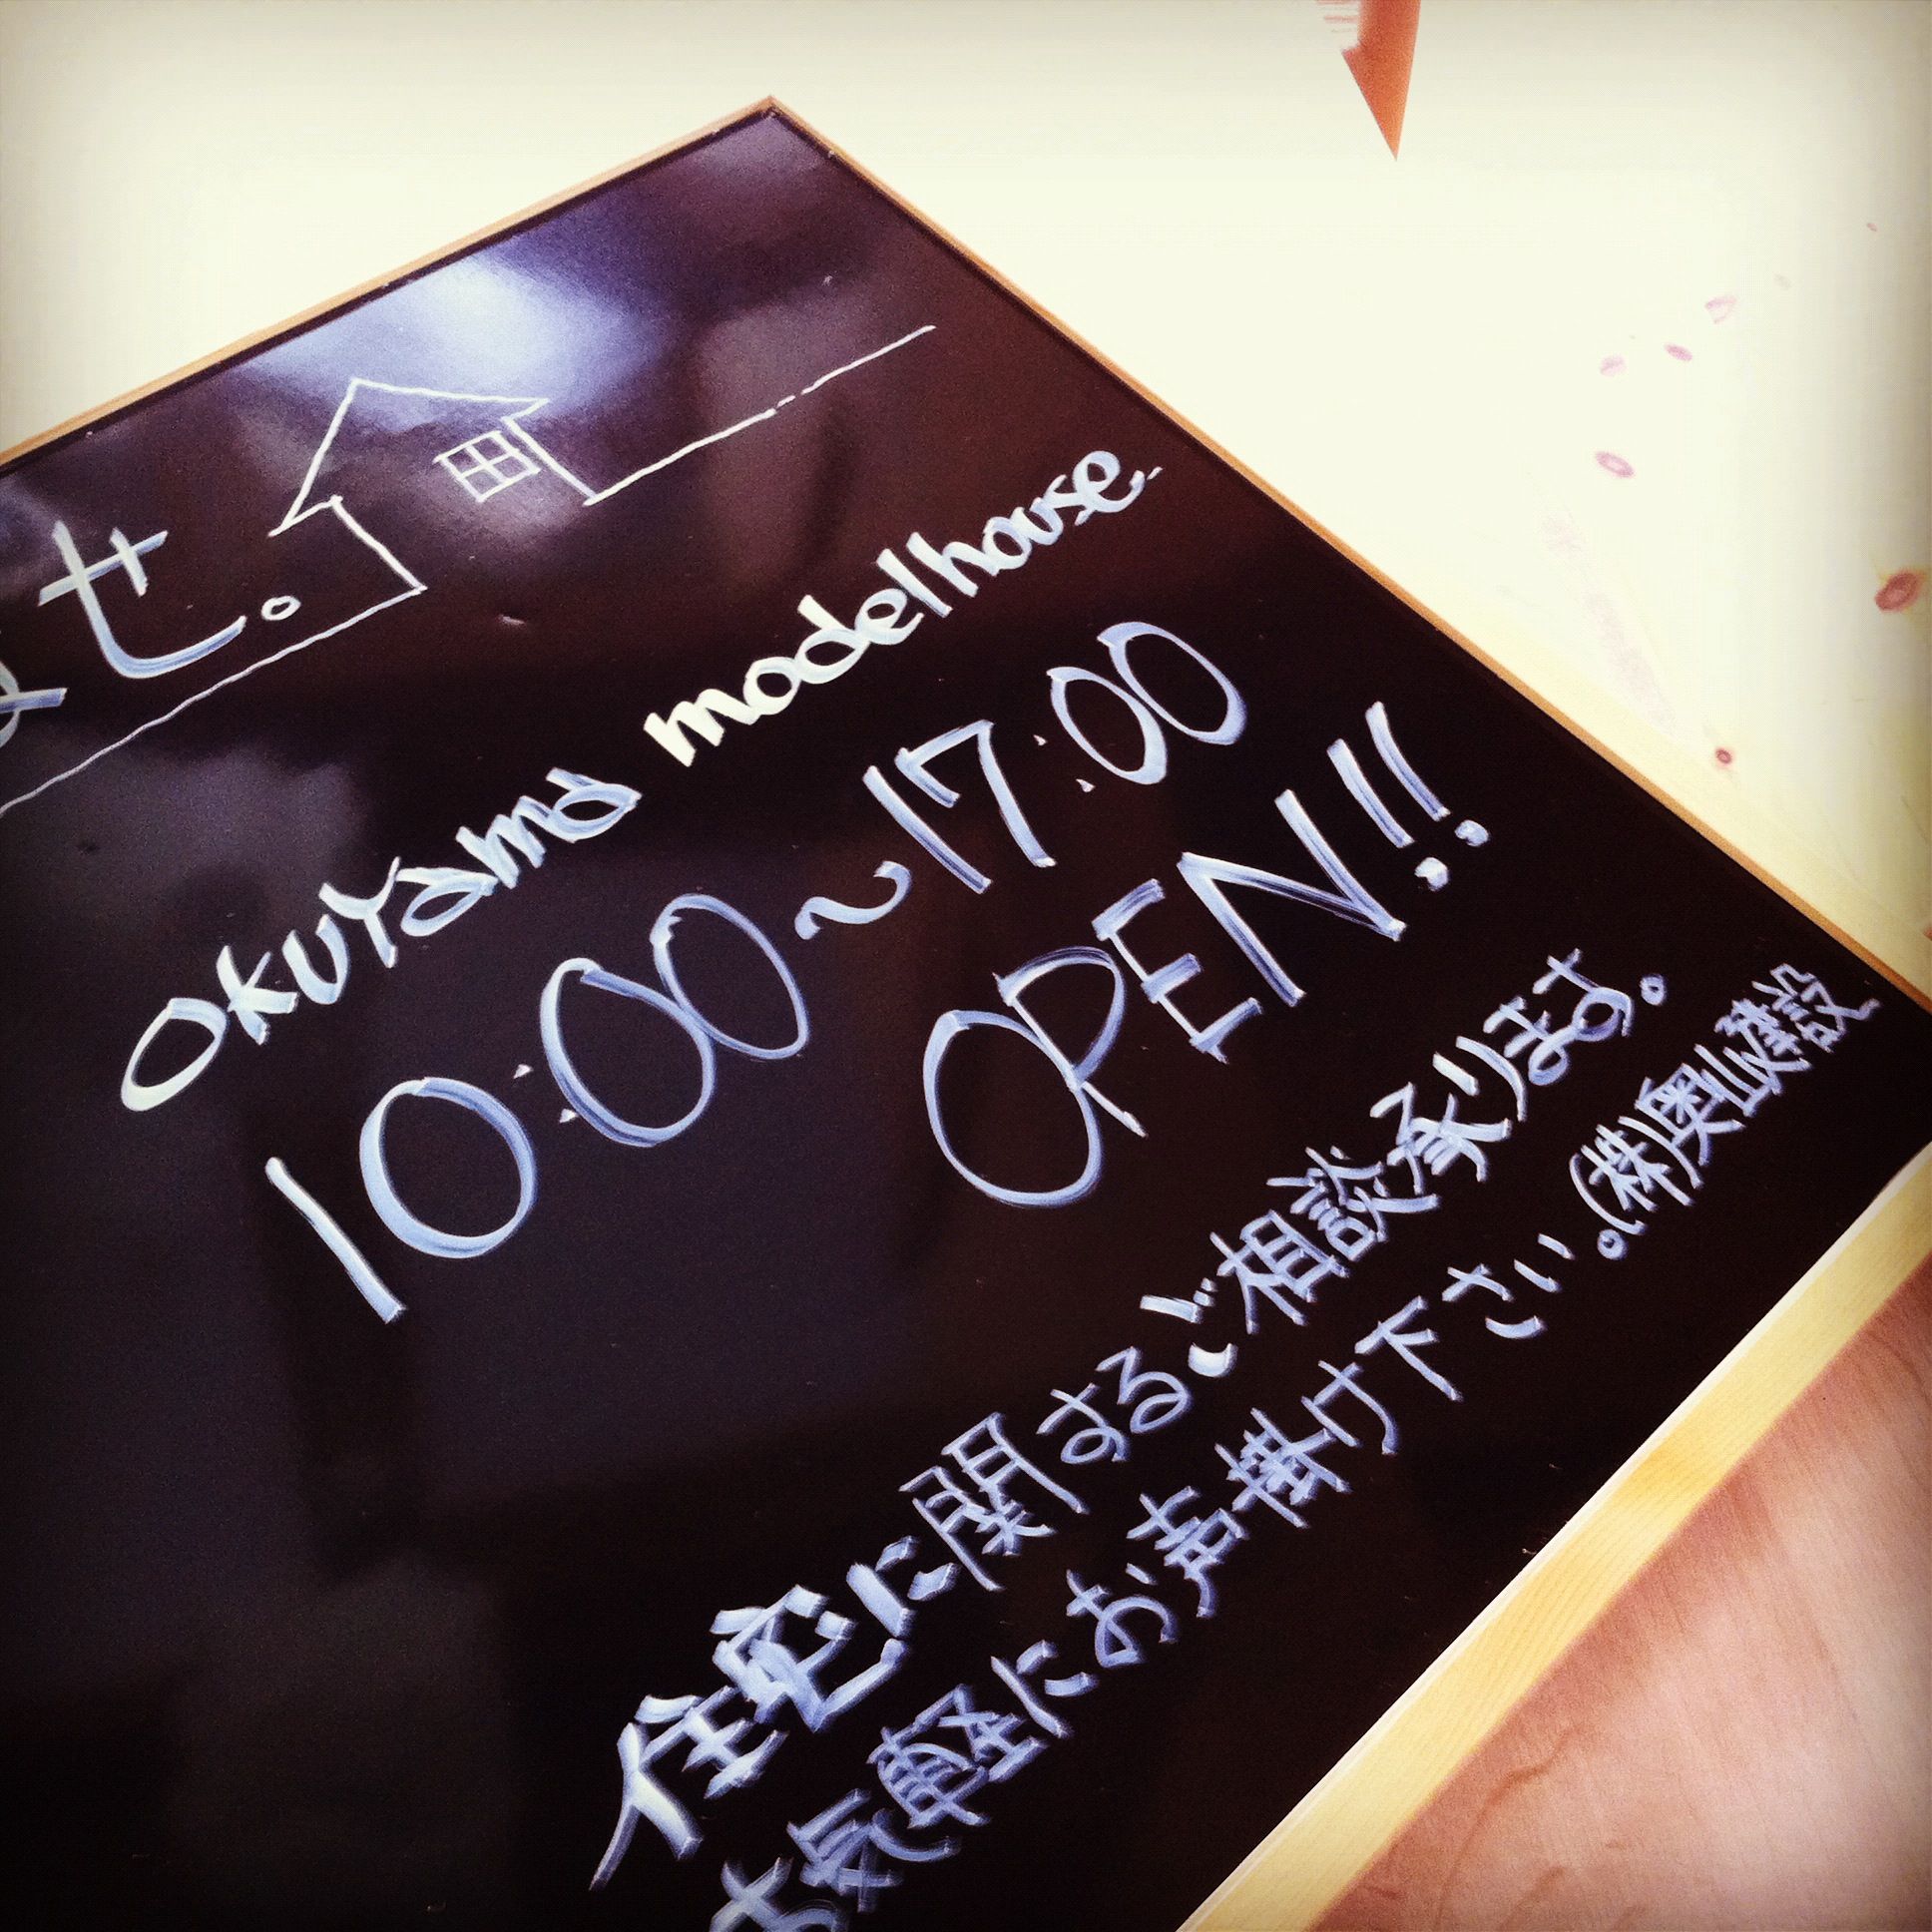 せ。
okuyama modelhouse.
10:00~17:00
OPEN!!
住宅に関するご相談承ります。
お気軽にお声掛け下さい。(株)奥山建設